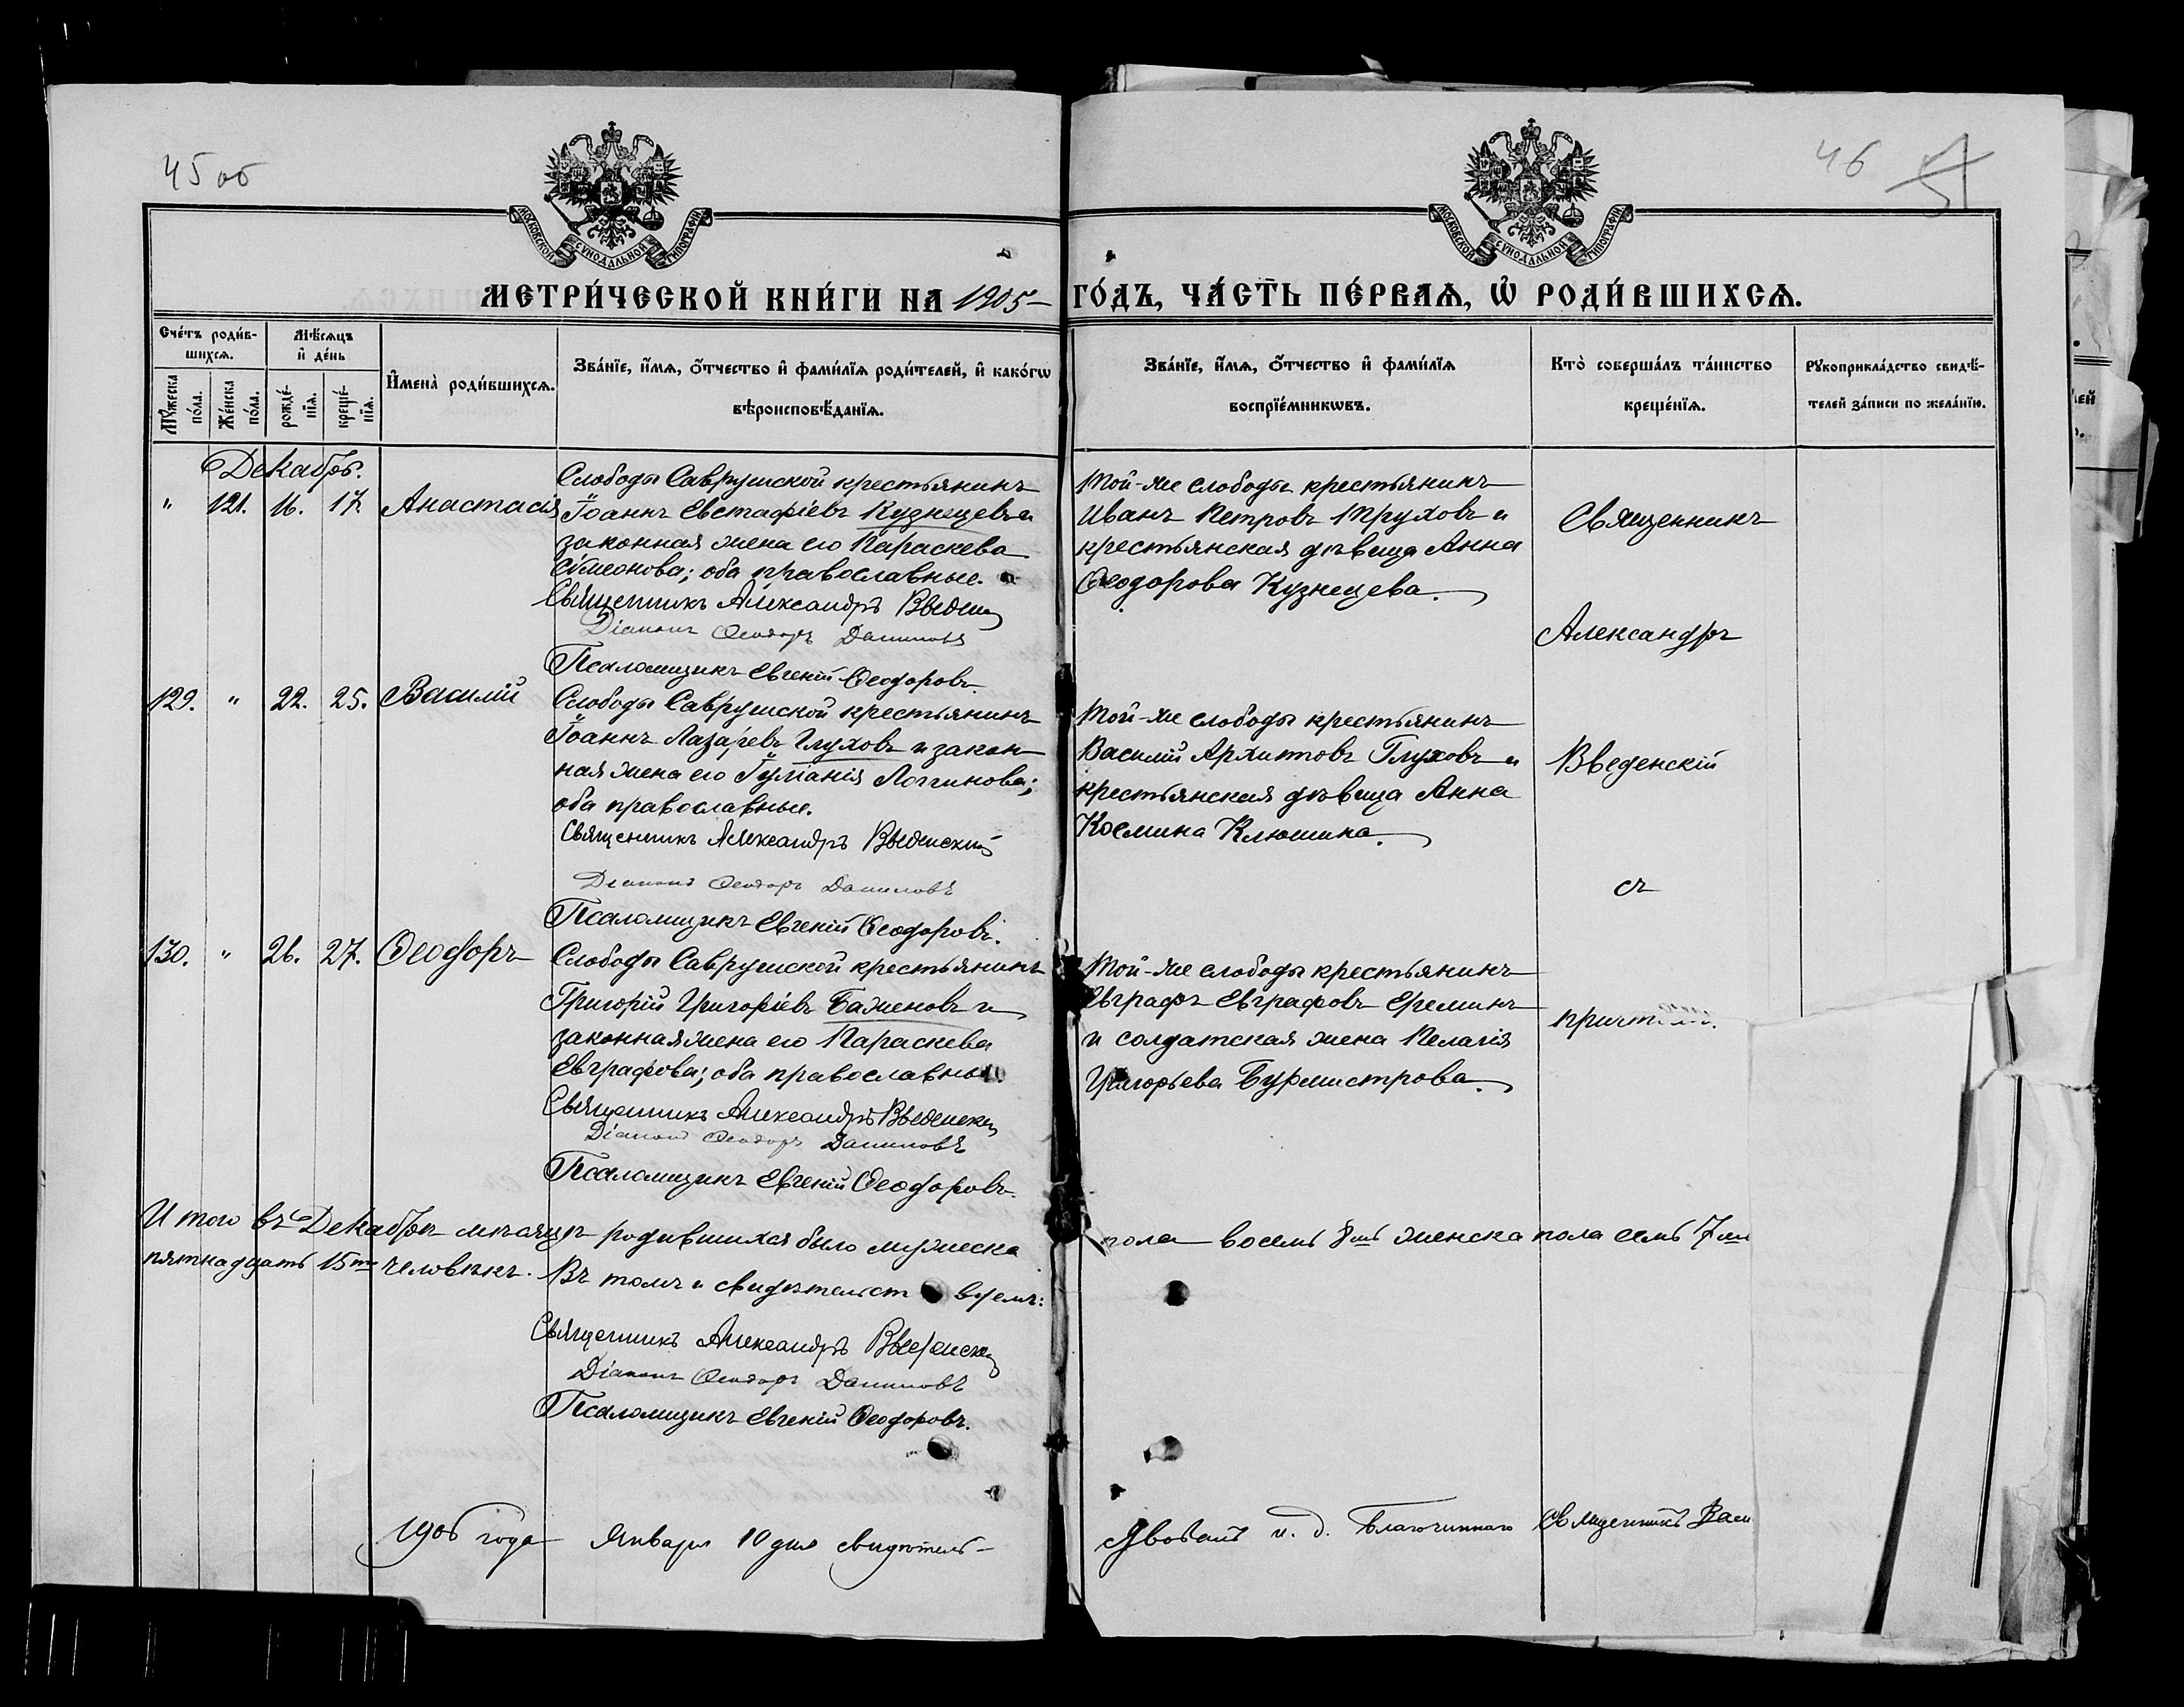 45 об
46
МОСКОВСКОЙ СѴНОДАЛЬНОЙ ТИПОГРАФІИ
МОСКОВСКОЙ СѴНОДАЛЬНОЙ ТИПОГРАФІИ
МЕТРИ́ЧЕСКОЙ КНИ́ГИ НА 1905 ГО́ДЪ, ЧА́СТЬ ПЕ́РВАѦ, Ѡ҆ РОДИ́ВШИХСѦ.
Сче́тъ роди́в-
шихсѧ.
Мѣ́сѧцъ
и҆ де́нь
Мꙋ́жеска
по́ла.
Же́нска
по́ла.
рожде́-
нїѧ.
креще́-
нїѧ.
И҆мена̀ роди́вшихсѧ.
Зва́нїе, и҆́мѧ, ѻ҆́тчество и҆ фами́лїѧ роди́телей, и҆ како́гѡ
вѣроисповѣ́данїѧ.
Зва́нїе, и҆́мѧ, ѻ҆́тчество и҆ фами́лїѧ
воспрїе́мникѡвъ.
Кто̀ соверша́лъ та́инство
креще́нїѧ.
Рꙋкоприкла́дство свидѣ́-
телей за́писи по жела́нїю.
Декабрь.
" 121. 16. 17. Анастасія
Слободы Саврушской крестьянинъ
Іоаннъ Евстафіевъ Кузнецовъ и
законная жена его Параскева
Сѵмеонова; оба православные.
Священникъ Александръ Введенскій
Діаконъ Ѳеодоръ Даниловъ
Псаломщикъ Евгеній Ѳеодоровъ.
Той-же слободы крестьянинъ
Иванъ Петровъ Пруховъ и
крестьянская дѣвица Анна
Ѳеодорова Кузнецева.
Священникъ
Александръ
129. " 22. 25. Василій
Слободы Саврушской крестьянинъ
Іоаннъ Лазаревъ Глуховъ и закон-
ная жена его Іуліанія Логгинова;
оба православные.
Священникъ Александръ Введенскій
Діаконъ Ѳеодоръ Даниловъ
Псаломщикъ Евгеній Ѳеодоровъ.
Той-же слободы крестьянинъ
Василій Архиповъ Глуховъ и
крестьянская дѣвица Анна
Космина Клюшина.
Введенскій
съ
130. " 26. 27. Ѳеодоръ
Слободы Саврушской крестьянинъ
Григорій Григоріевъ Баженовъ и
законная жена его Параскева
Евграфова; оба православные.
Священникъ Александръ Введенскій
Діаконъ Ѳеодоръ Даниловъ
Псаломщикъ Евгеній Ѳеодоровъ.
Той-же слободы крестьянинъ
Евграфъ Евграфовъ Ереминъ
и солдатская жена Пелагія
Григорьева Бурмистрова.
причтомъ.
И того въ Декабрѣ мѣсяцѣ родившихся было мужеска пола восемь 8мь женска пола семь 7мь
пятнадцать 15ть человѣкъ. Въ томъ и свидѣтельст вуемъ:
Священникъ Александръ Введенскій
Діаконъ Ѳеодоръ Даниловъ
Псаломщикъ Евгеній Ѳеодоровъ.
1906 года Января 10 дня свидѣтель-
ствовалъ и. д. Благочиннаго Священникъ Васи